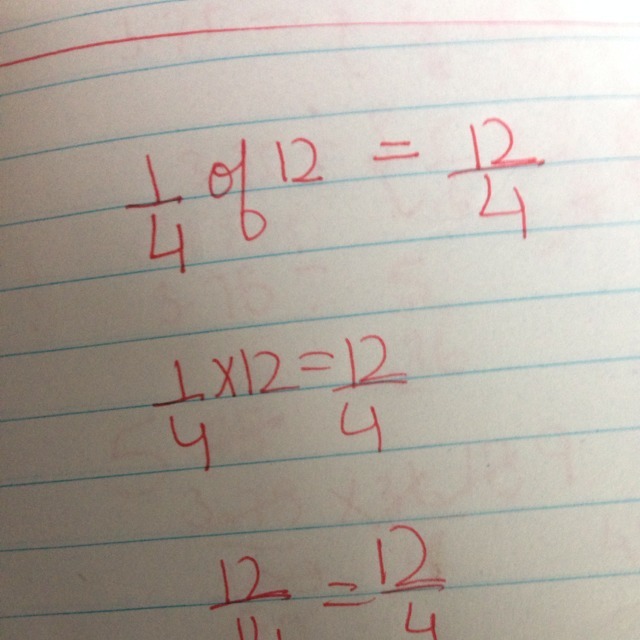 1/4 of 12 = 12/4
1/4 x 12 = 12/4
12/4 = 12/4